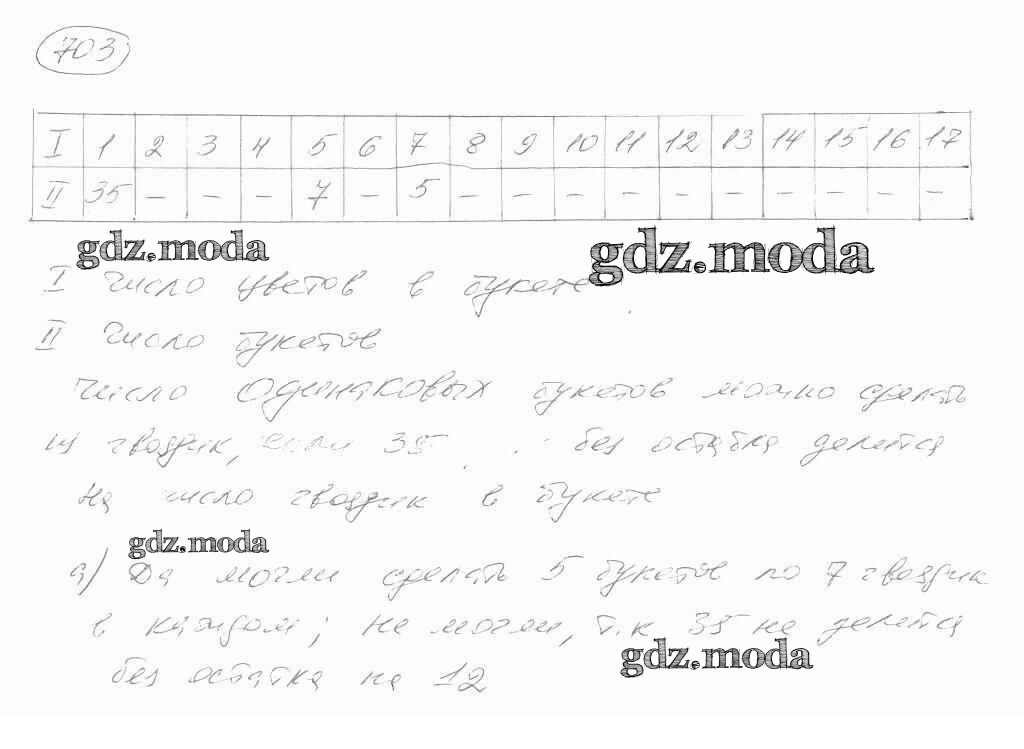 703
I 1 2 3 4 5 6 7 8 9 10 11 12 13 14 15 16 17
II 35 – – – – 7 – 5 – – – – – – – – – –
gdz.moda gdz.moda
I число цветов в букете
II число букетов
число одинаковых букетов можно сделать
из гвоздик, если 35 без остатка делится
на число гвоздик в букете
gdz.moda
а) Да могли сделать 5 букетов по 7 гвоздик
в каждом; не могли, т.к 35 не делится
gdz.moda
без остатка на 12